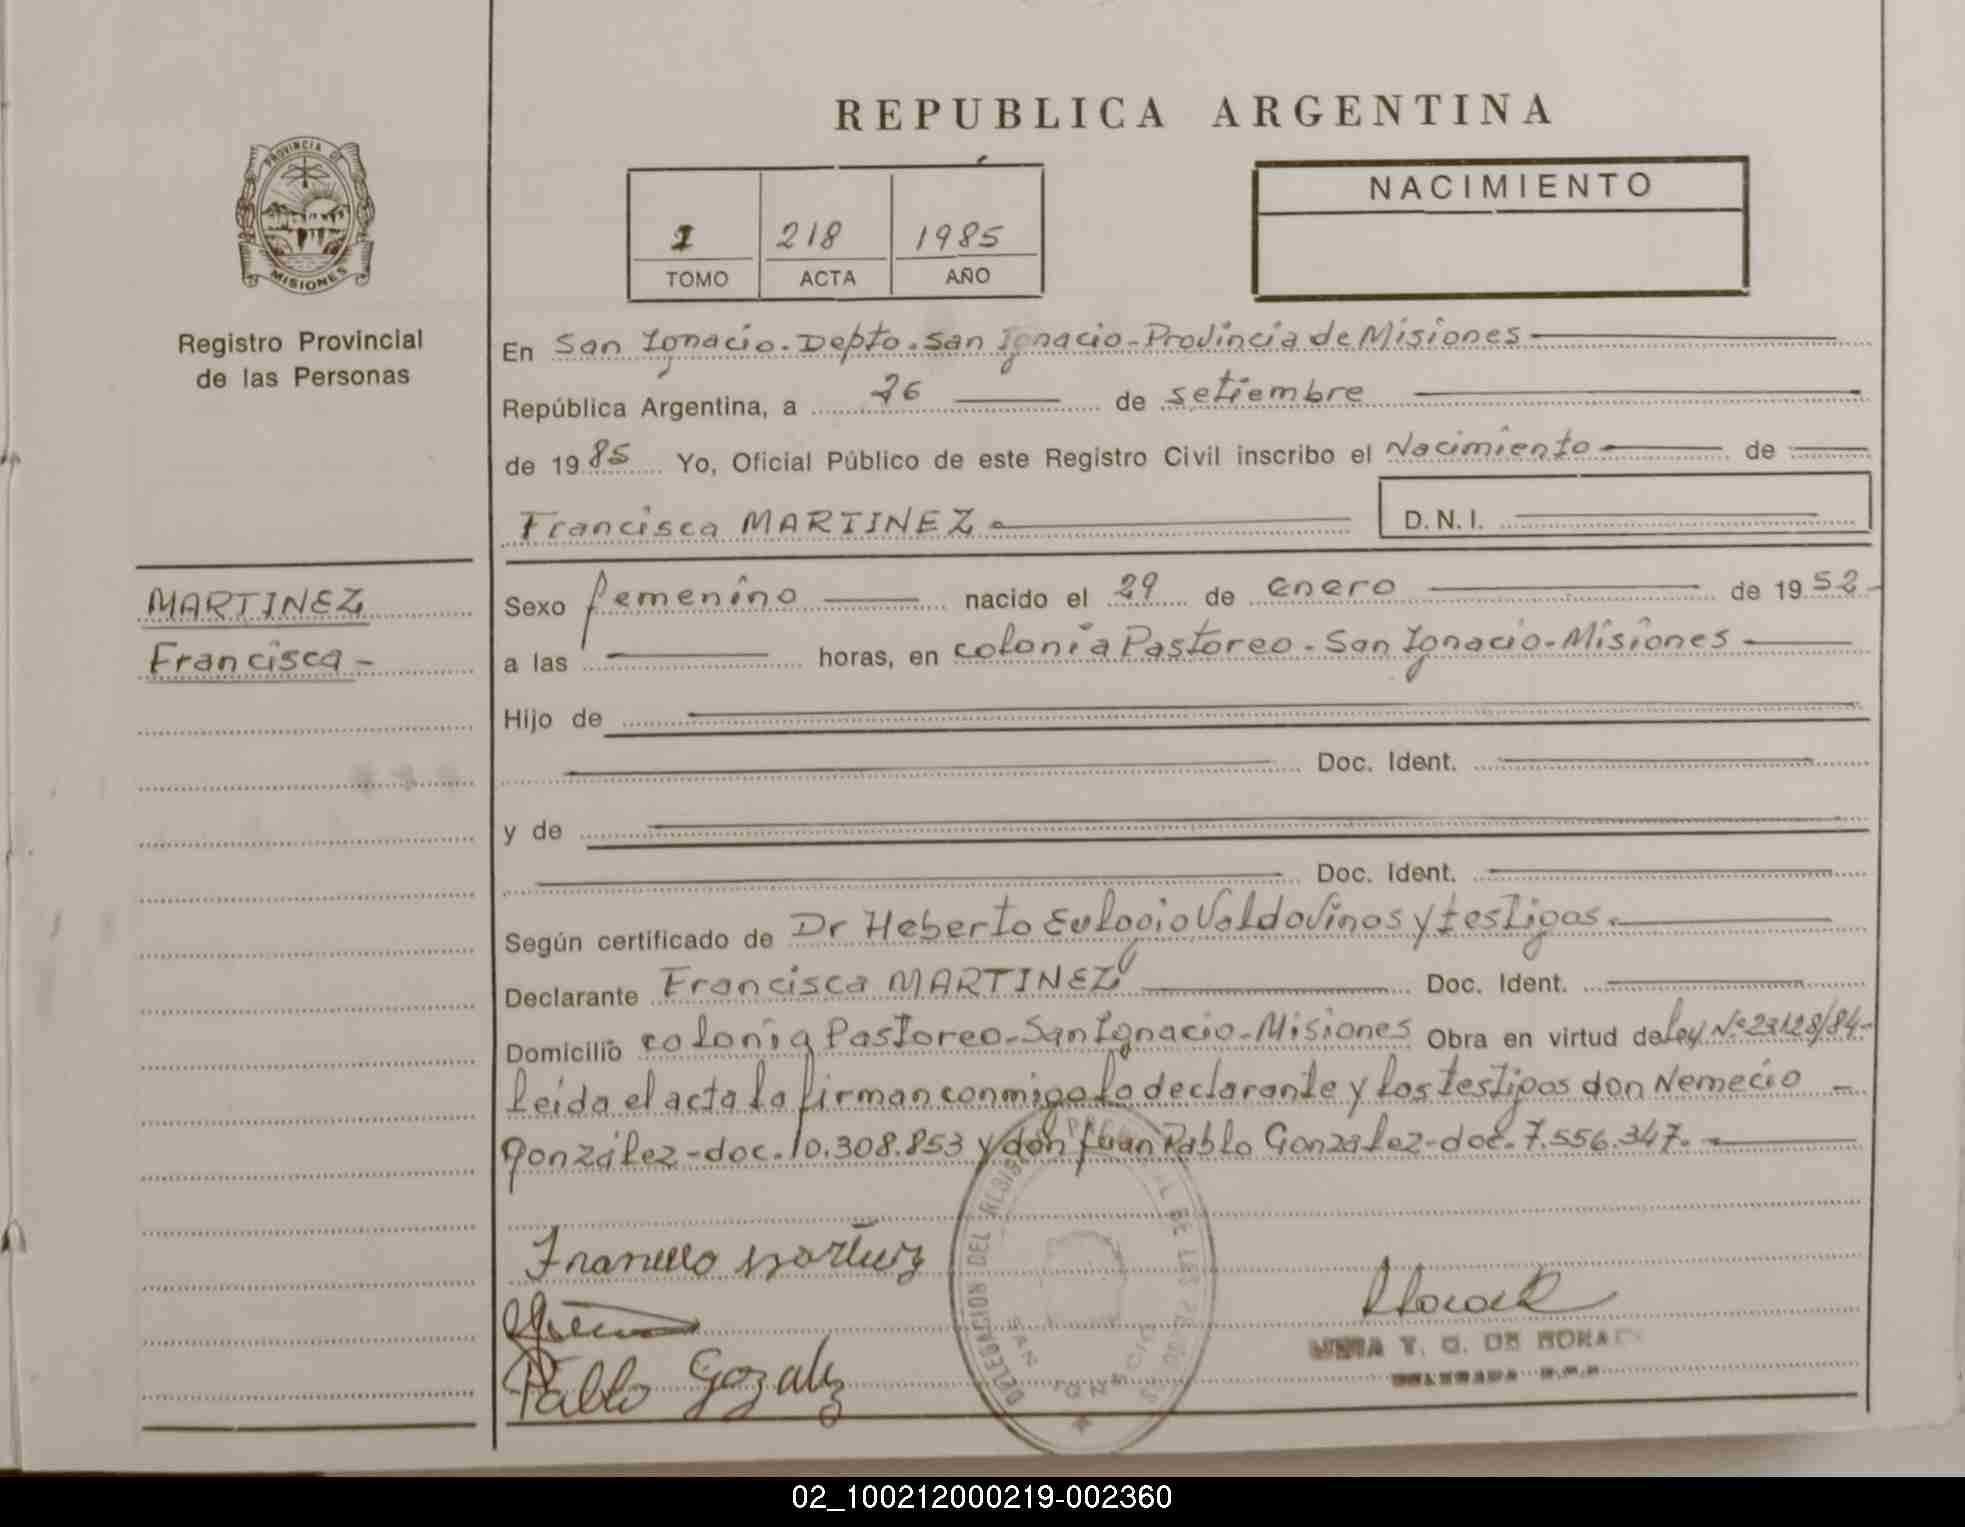 REPUBLICA ARGENTINA
PROVINCIA DE
MISIONES
Registro Provincial
de las Personas
1 218 1985
TOMO ACTA AÑO
NACIMIENTO
En San Ignacio - Depto. San Ignacio - Provincia de Misiones
República Argentina, a 26 de setiembre
de 1985 Yo, Oficial Público de este Registro Civil inscribo el Nacimiento de
Francisca MARTINEZ D.N.I.
MARTINEZ
Francisca -
Sexo femenino nacido el 29 de enero de 1952 -
a las horas, en colonia Pastoreo - San Ignacio - Misiones
Hijo de
Doc. Ident.
y de
Doc. Ident.
Según certificado de Dr Heberto Eulogio Valdovinos y testigos.
Declarante Francisca MARTINEZ Doc. Ident.
Domicilio colonia Pastoreo - San Ignacio - Misiones Obra en virtud de ley Nº 23128/84 -
leída el acta la firman conmigo la declarante y los testigos don Nemecio -
González - doc. 10.308.853 y don Juan Pablo Gonzalez - doc. 7.556.347.
DELEGACION DEL
SAN IGNACIO
Pablo Gozalez
T. G. DE
DELEGADA
02_100212000219-002360